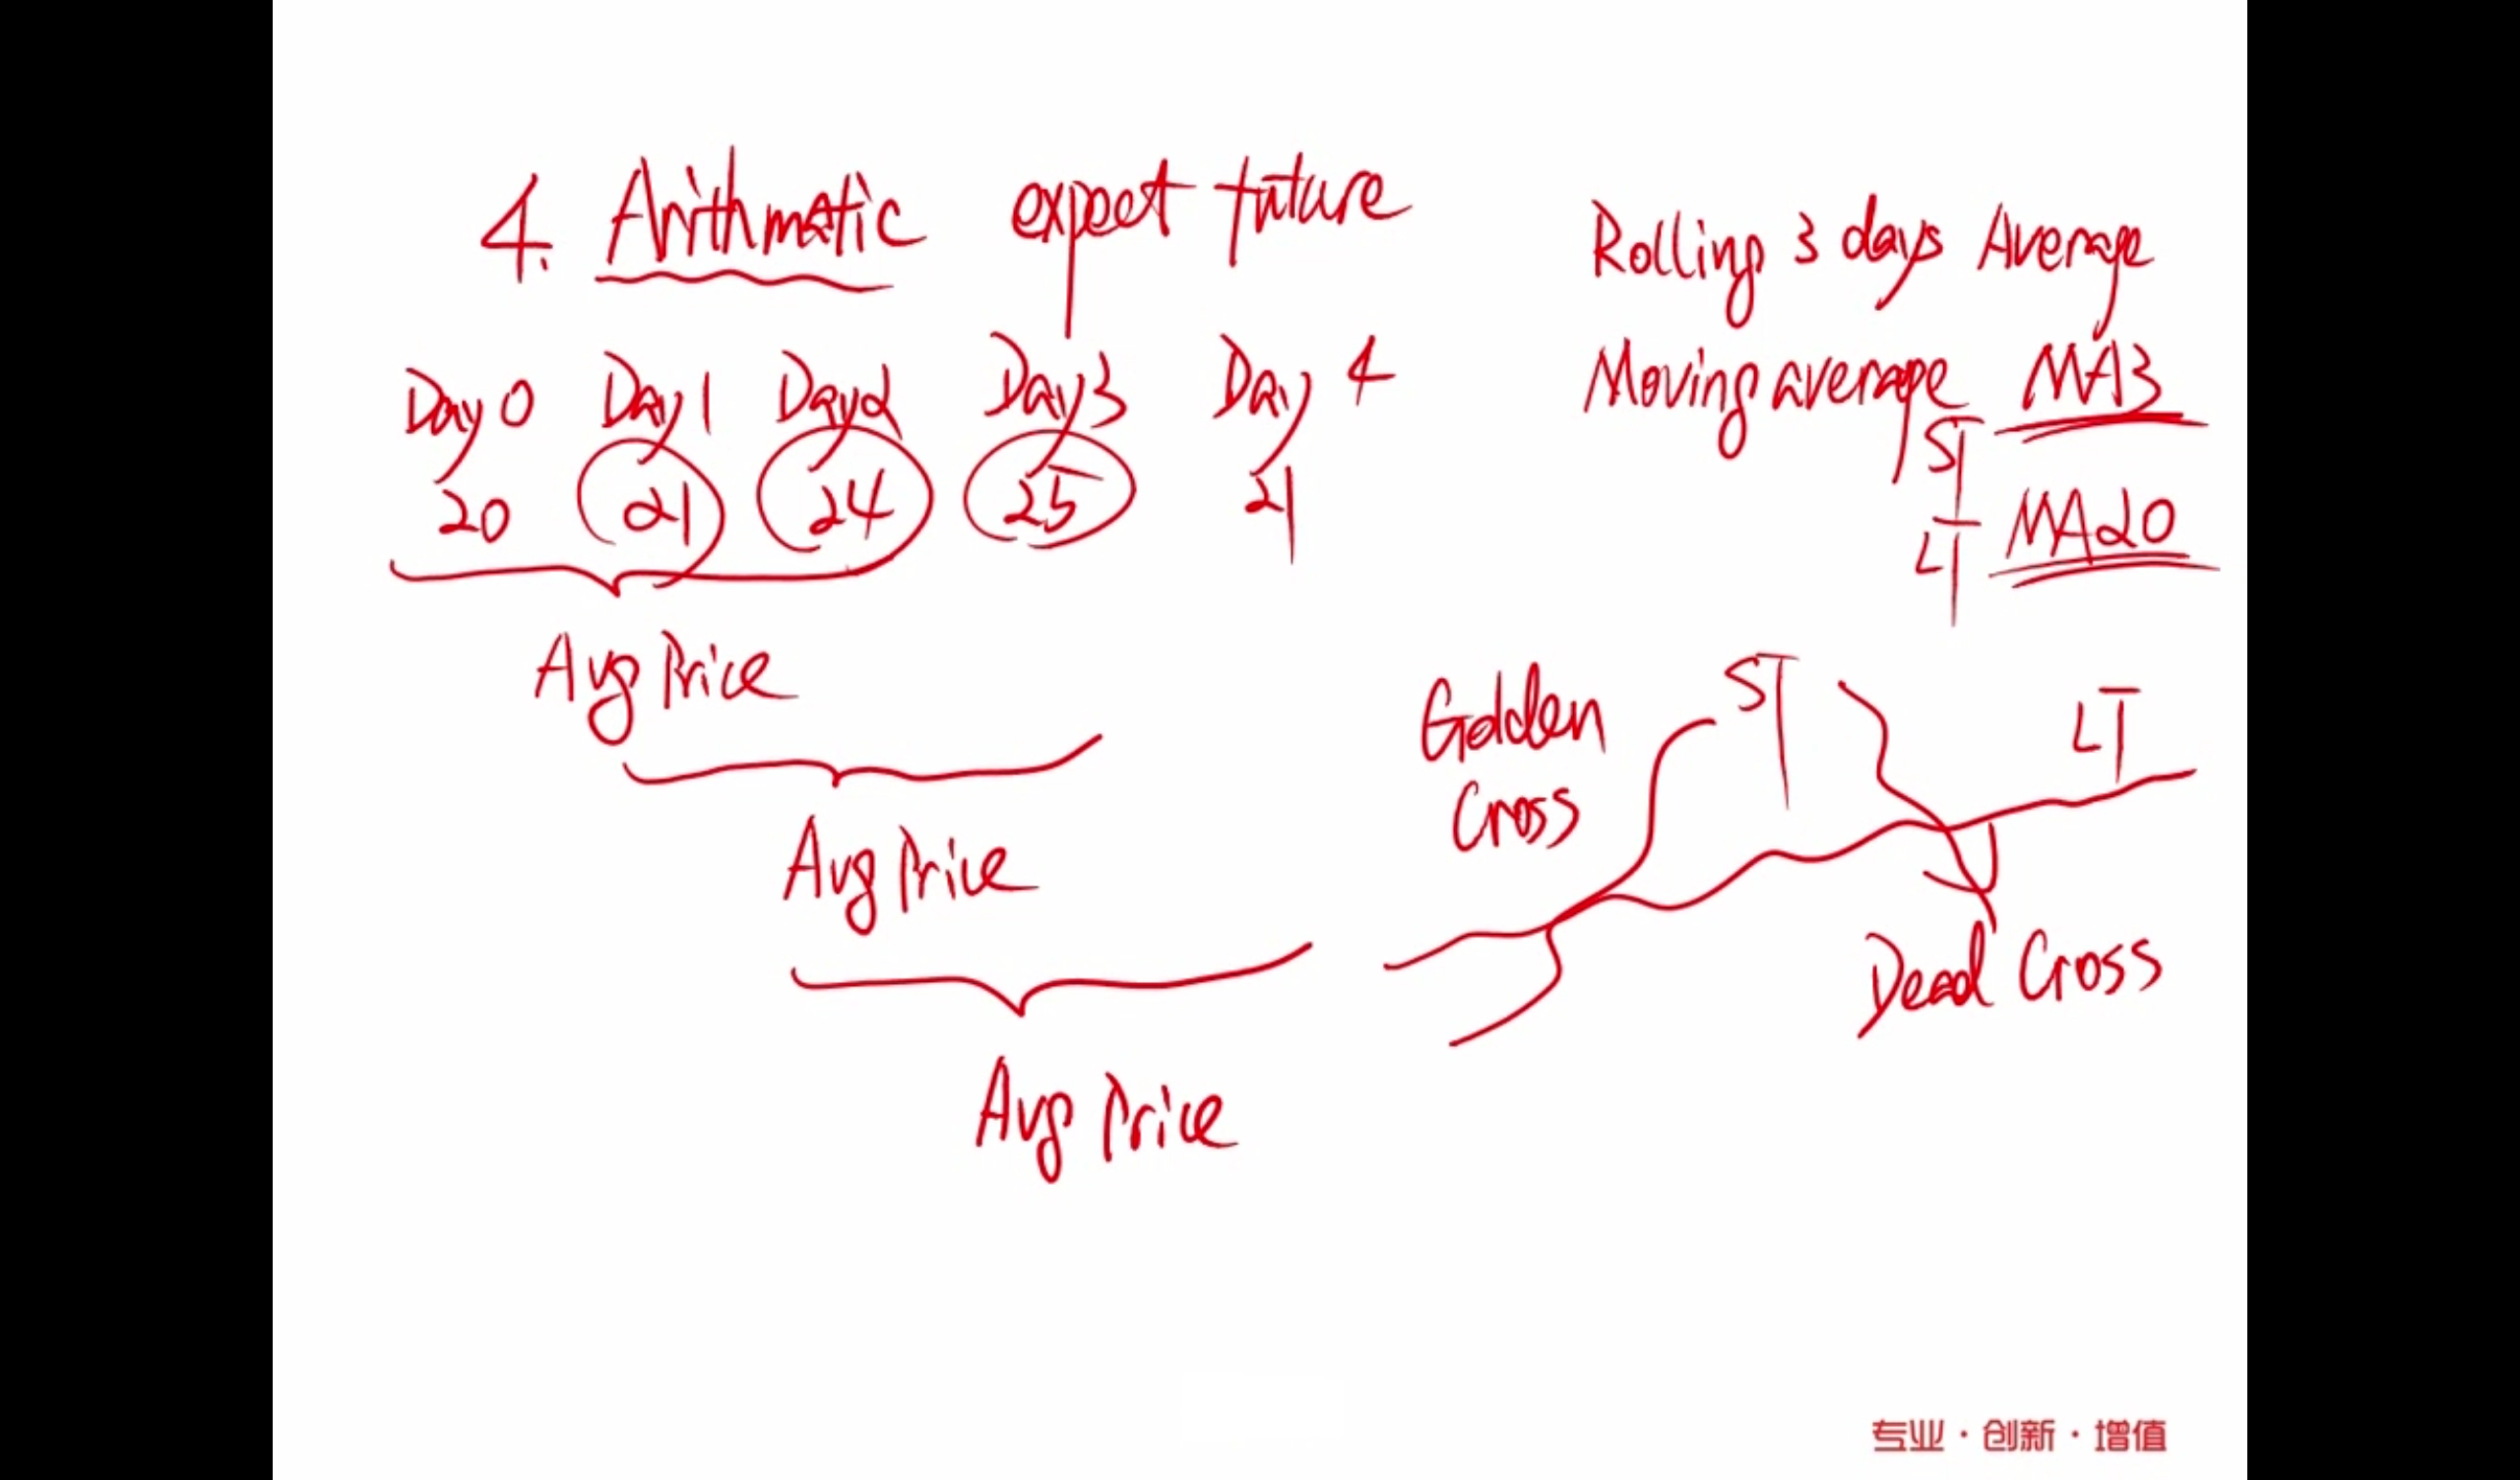 4. Arithmatic expect future
Day 0 Day 1 Day 2 Day 3 Day 4
20 21 24 25 21
Avg Price
Avg Price
Avg Price
Rolling 3 days Average
Moving average MA3
ST
LT MA20
Golden
Cross
ST
LT
Dead Cross
专业·创新·增值